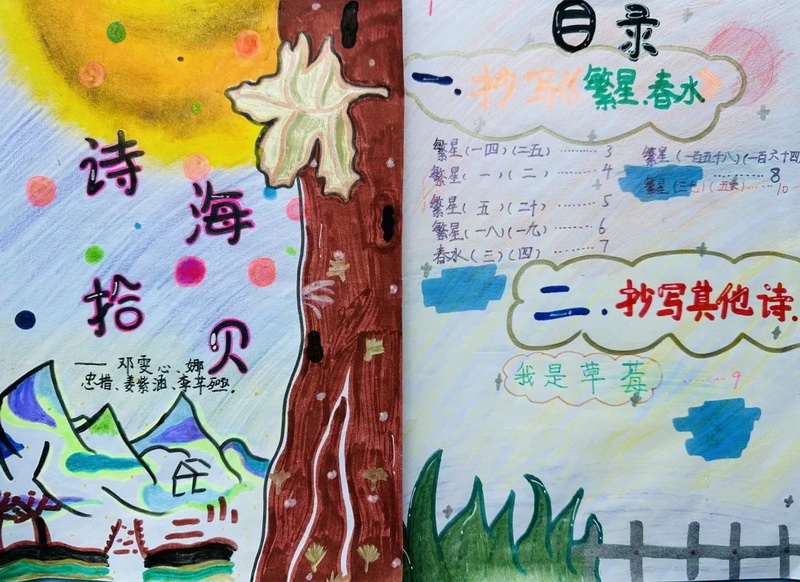 诗海拾贝
——邓雯心、娜
忠措、姜紫涵、李苹
1
目录
一.抄写《繁星.春水》
繁星(一四)(二五)………3
繁星(一)(二)………4
繁星(五)(二十)………5
繁星(一八)(一九)………6
春水(三)(四)………7
繁星(一百五十八)(一百六十四
………8
繁星(三七)(五
………10
二.抄写其他诗.
我是草莓………9